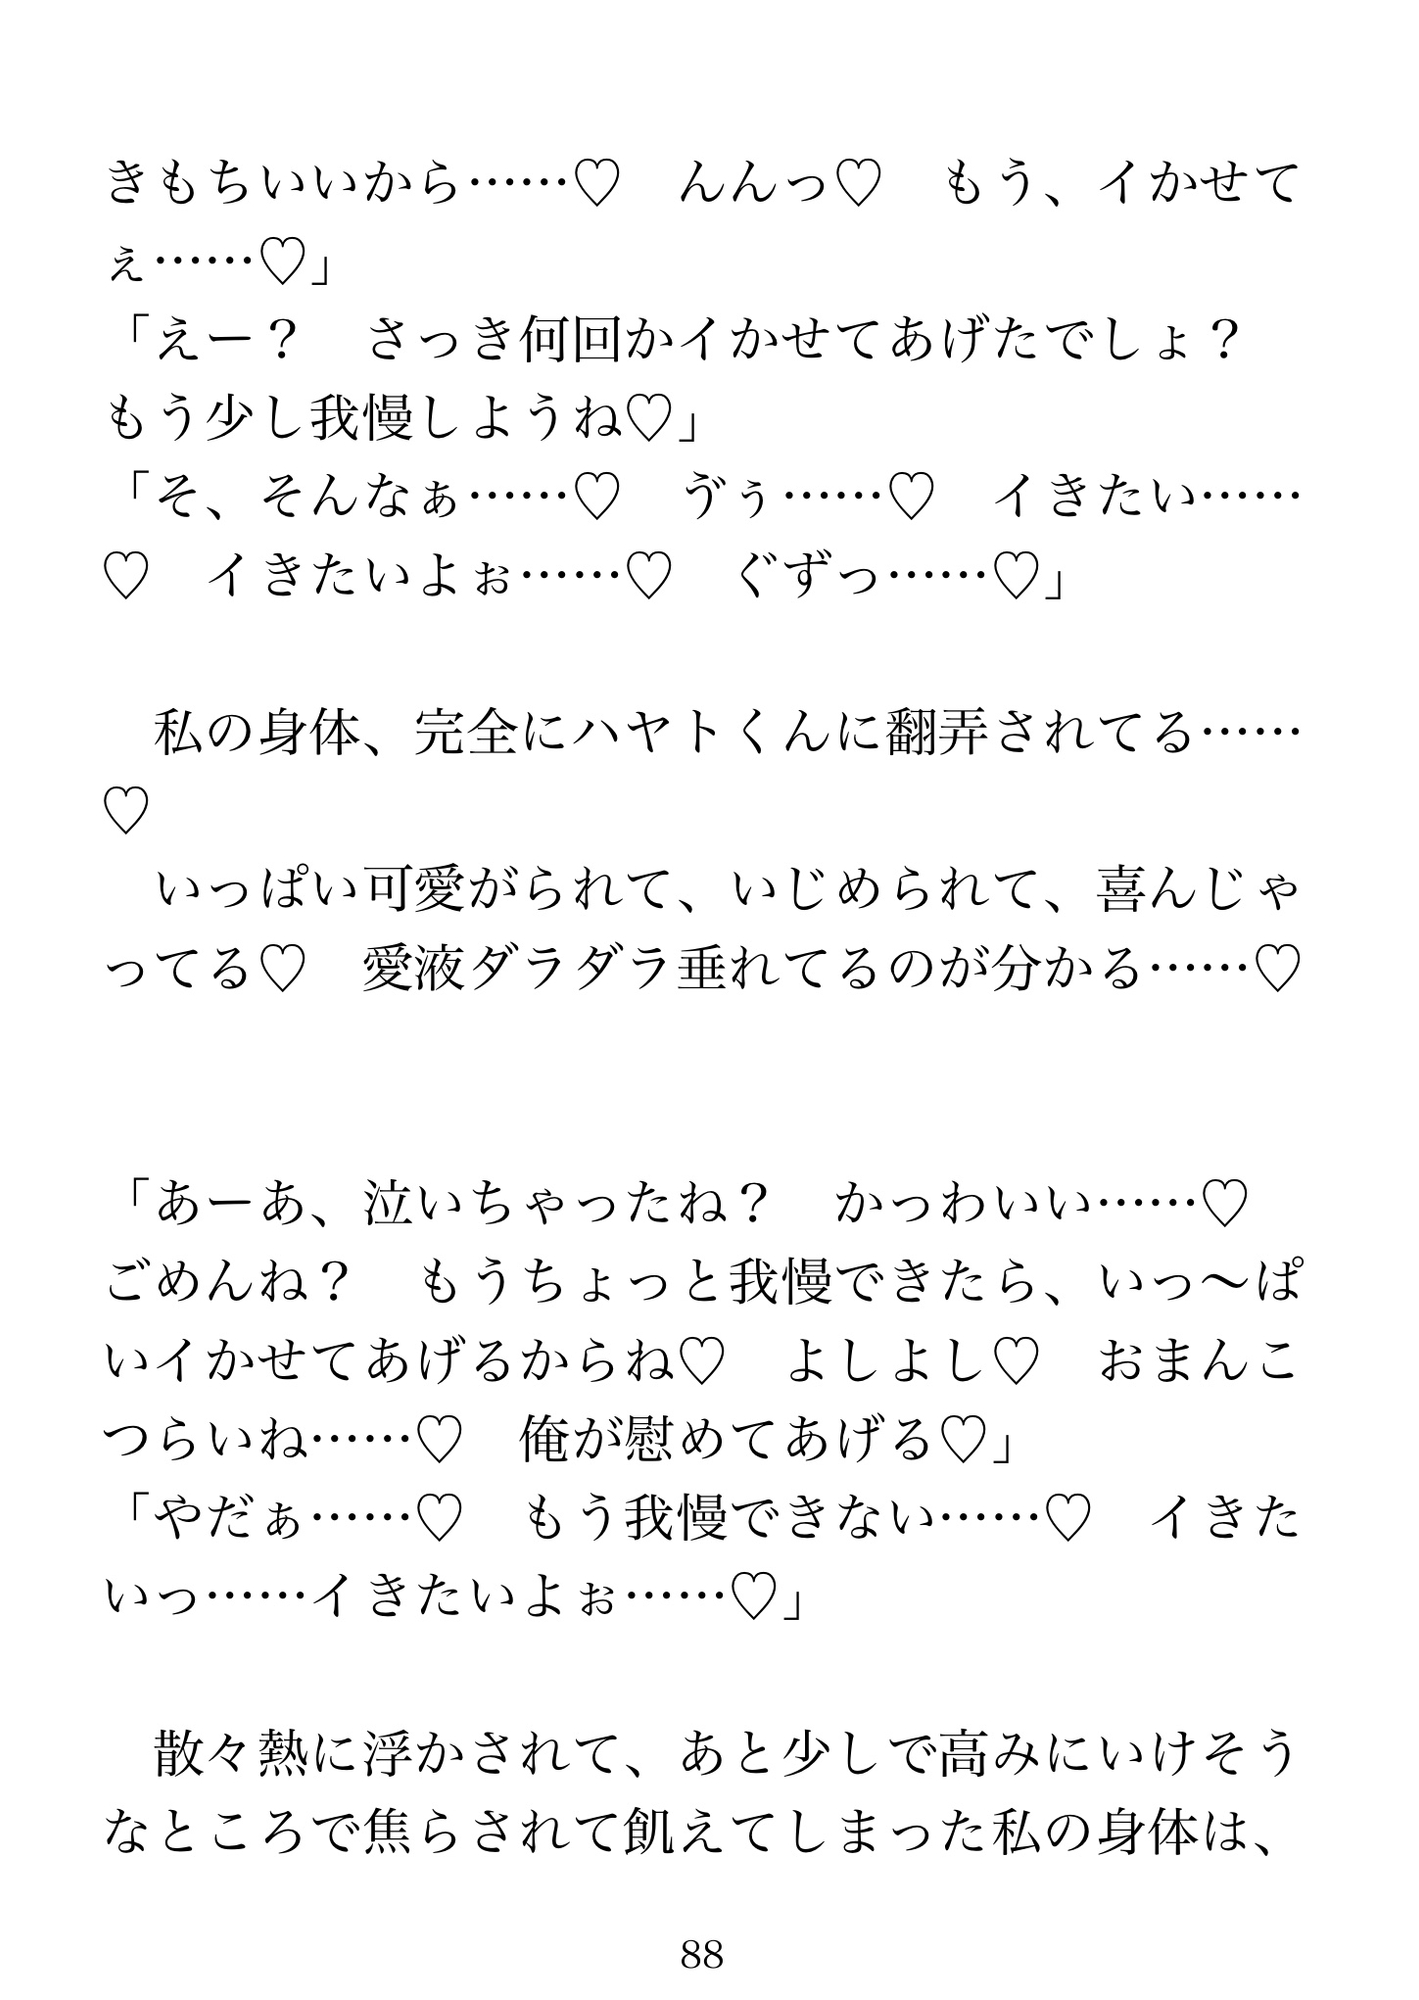 きもちいいから……♡　んんっ♡　もう、イかせて
ぇ……♡」
「えー？　さっき何回かイかせてあげたでしょ？
もう少し我慢しようね♡」
「そ、そんなぁ……♡　ゔぅ……♡　イきたい……
♡　イきたいよぉ……♡　ぐずっ……♡」
　私の身体、完全にハヤトくんに翻弄されてる……
♡
　いっぱい可愛がられて、いじめられて、喜んじゃ
ってる♡　愛液ダラダラ垂れてるのが分かる……♡
「あーあ、泣いちゃったね？　かっわいい……♡
ごめんね？　もうちょっと我慢できたら、いっ～ぱ
いイかせてあげるからね♡　よしよし♡　おまんこ
つらいね……♡　俺が慰めてあげる♡」
「やだぁ……♡　もう我慢できない……♡　イきた
いっ……イきたいよぉ……♡」
　散々熱に浮かされて、あと少しで高みにいけそう
なところで焦らされて飢えてしまった私の身体は、
88